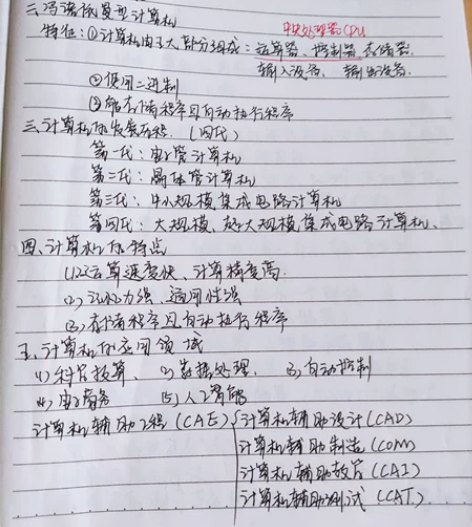 二、冯诺依曼型计算机
中央处理器CPU
特征：①计算机由五大部分组成：运算器、控制器、存储器、
输入设备、输出设备.
②使用二进制
③能存储程序且自动执行程序
三、计算机的发展历程.（四代）
第一代：电子管计算机
第二代：晶体管计算机
第三代：中小规模集成电路计算机
第四代：大规模、超大规模集成电路计算机、
四、计算机的特点
(1)运算速度快、计算精度高.
(2)记忆力强、通用性强
(3)存储程序且自动执行程序
五、计算机的应用领域
(1)科学计算、 (2)数据处理. (3)自动控制
(4)电子商务 (5)人工智能
计算机辅助工程(CAE) 计算机辅助设计(CAD)
计算机辅助制造(COM)
计算机辅助教学(CAI)
计算机辅助测试(CAT)